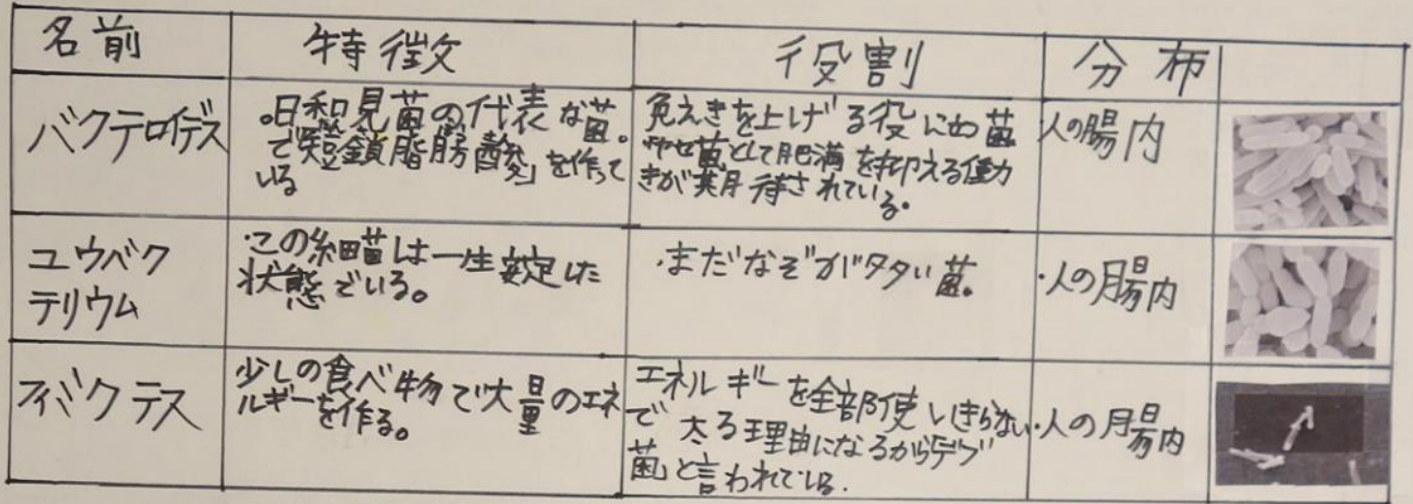 名前
特徴
役割
分布
バクテロイデス
。日和見菌の代表な菌。
で「短鎖脂肪酸」を作って
いる
免えきを上げる役にわ菌
やせ菌として肥満を抑える働
きが期待されている。
人の腸内
ユウバク
テリウム
・この細菌は一生安定した
状態でいる。
・まだなぞが多い菌。
・人の腸内
少しの食べ物で大量のエネ
ルギーを作る。
エネルギーを全部使いきらない
で太る理由になるからデブ
菌と言われている.
・人の腸内